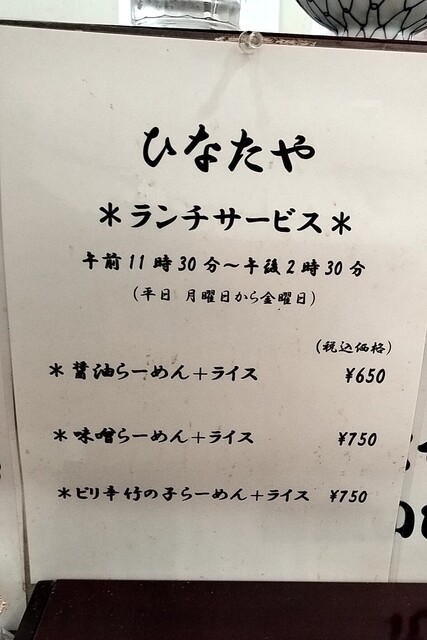 ひなたや
＊ランチサービス＊
午前11時30分～午後2時30分
（平日 月曜日から金曜日）
（税込価格）
＊醤油らーめん＋ライス ¥650
＊味噌らーめん＋ライス ¥750
＊ピリ辛竹の子らーめん＋ライス ¥750